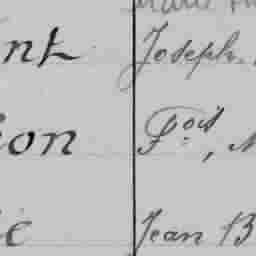 nk Joseph
ion Fois, M
ie Jean B